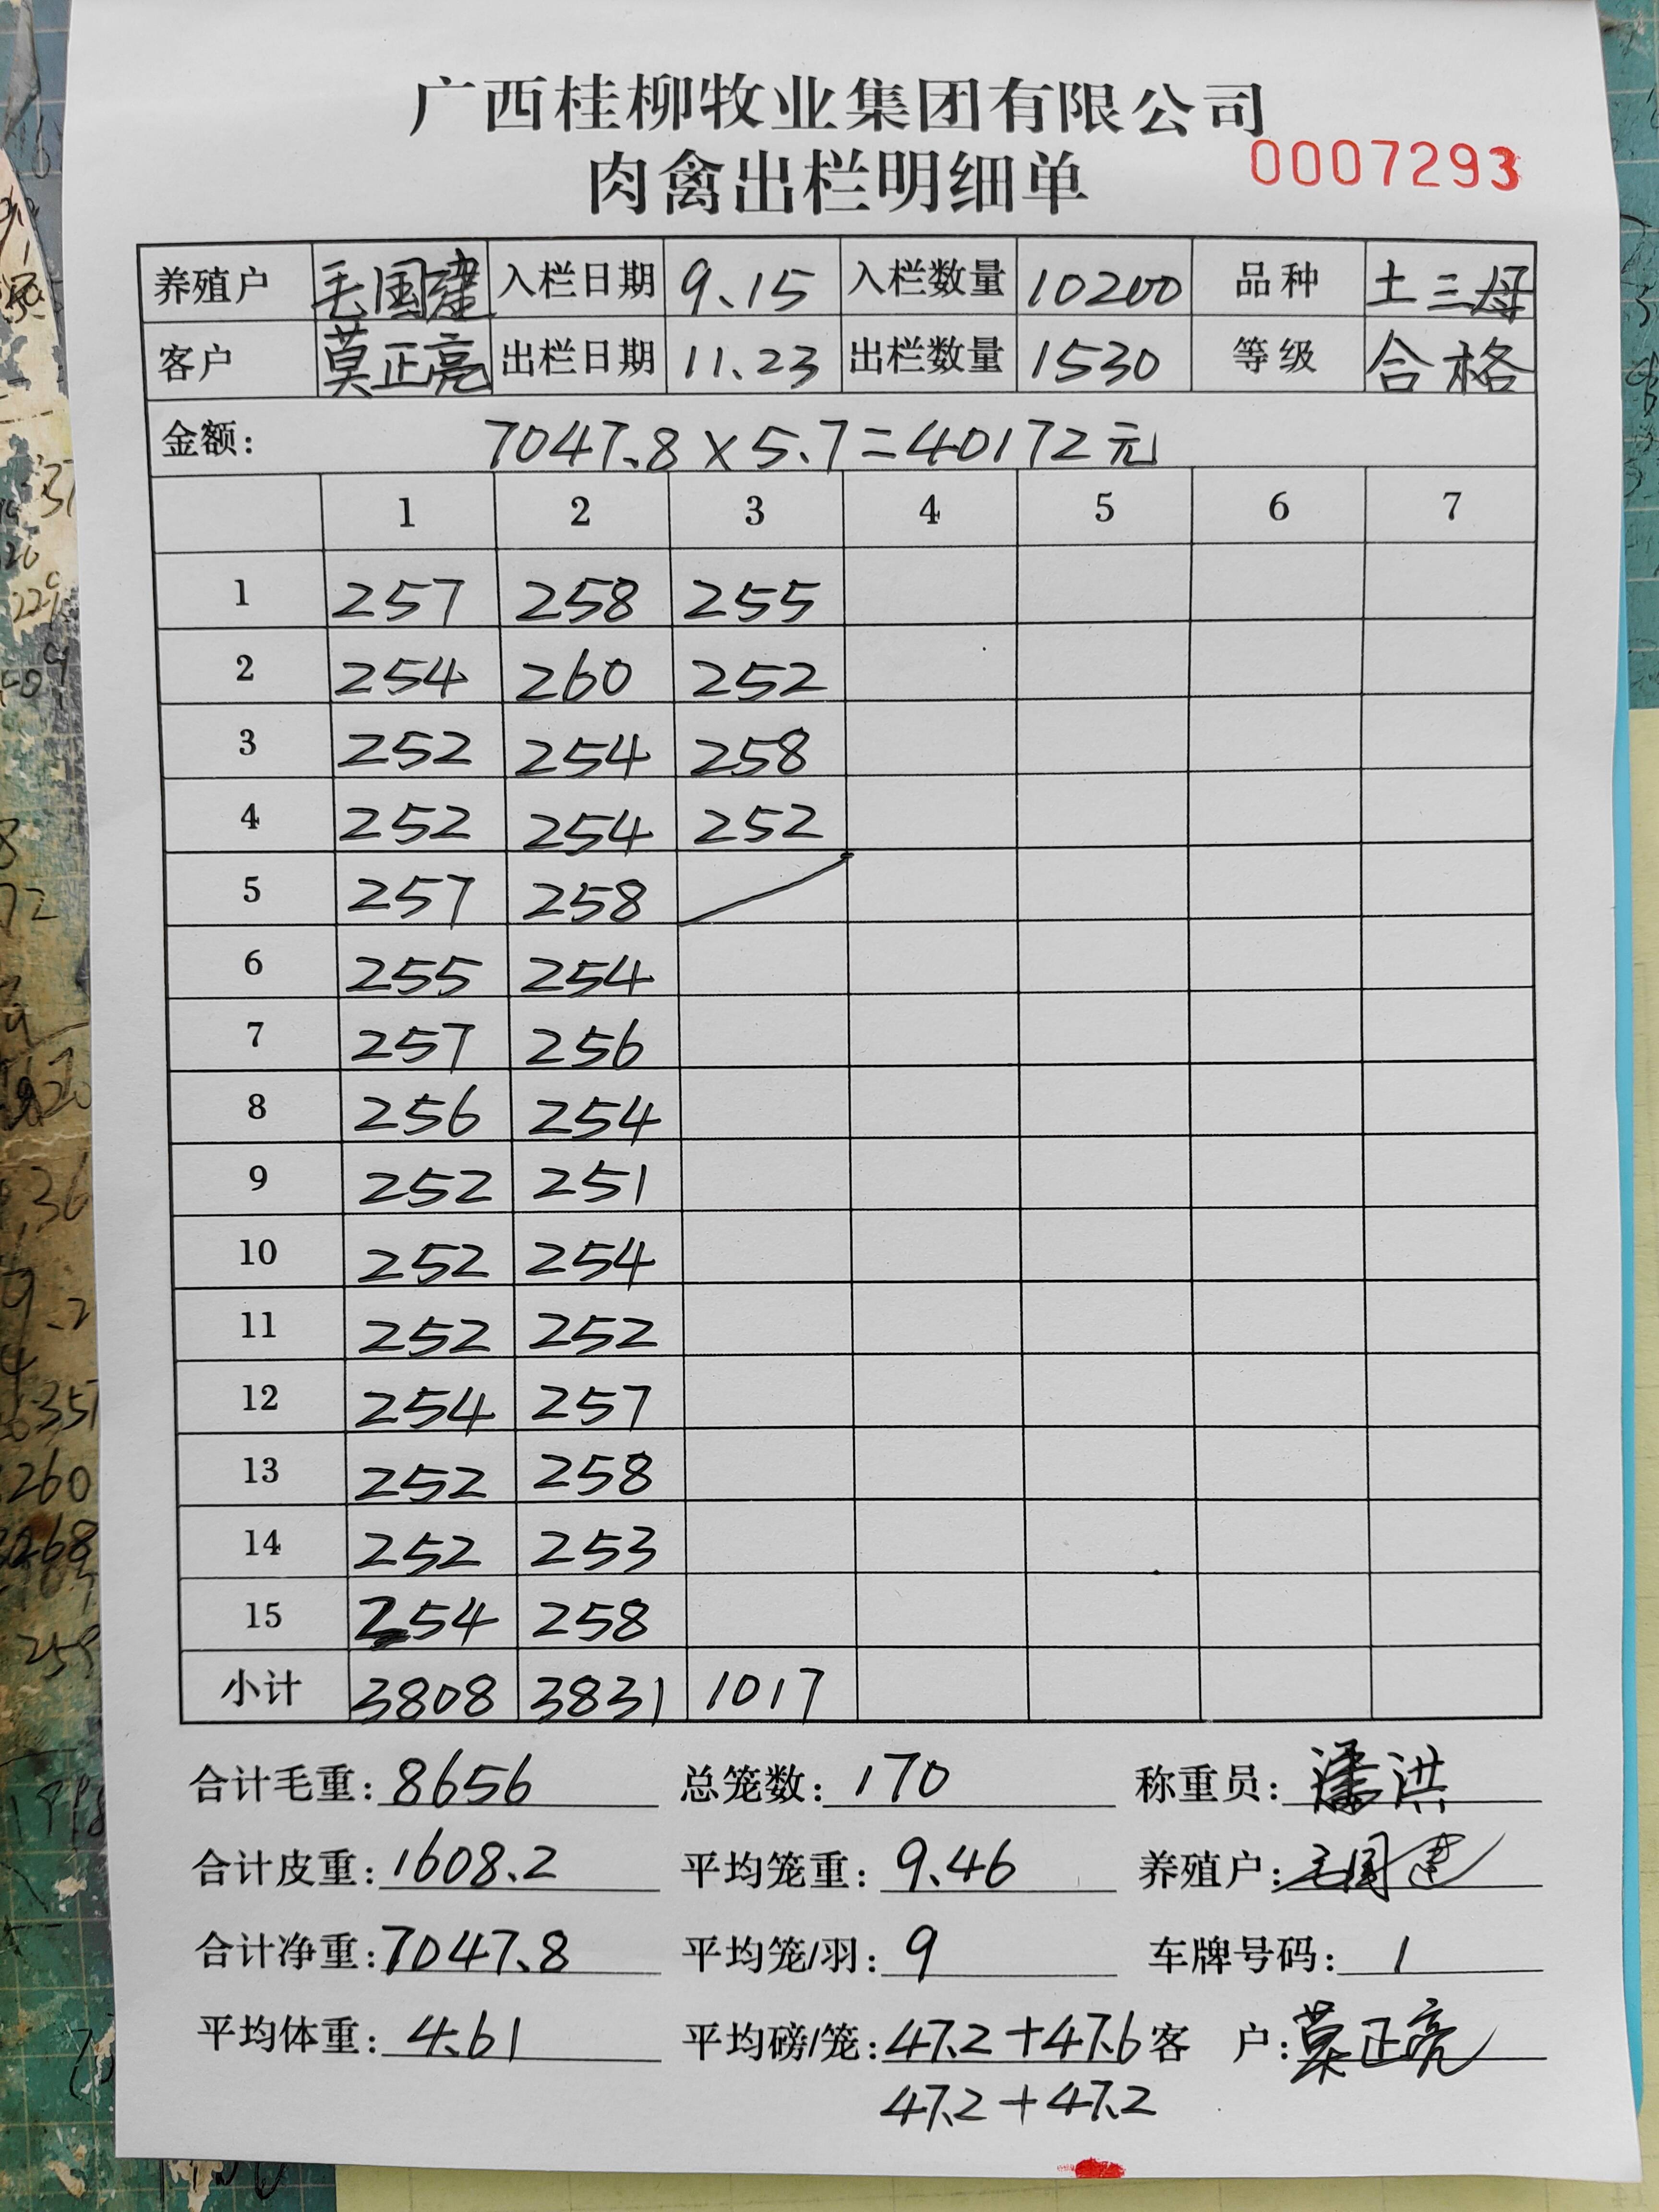 广西桂柳牧业集团有限公司
肉禽出栏明细单
0007293
养殖户 毛国建 入栏日期 9.15 入栏数量 10200 品种 土三母
客户 莫正亮 出栏日期 11.23 出栏数量 1530 等级 合格
金额: 7047.8×5.7=40172元
1 2 3 4 5 6 7
1 257 258 255
2 254 260 252
3 252 254 258
4 252 254 252
5 257 258
6 255 254
7 257 256
8 256 254
9 252 251
10 252 254
11 252 252
12 254 257
13 252 258
14 252 253
15 254 258
小计 3808 3831 1017
合计毛重: 8656 总笼数: 170 称重员: 潘洪
合计皮重: 1608.2 平均笼重: 9.46 养殖户: 毛国建
合计净重: 7047.8 平均笼/羽: 9 车牌号码: 1
平均体重: 4.61 平均磅/笼: 47.2+47.6 客 户: 莫正亮
47.2+47.2